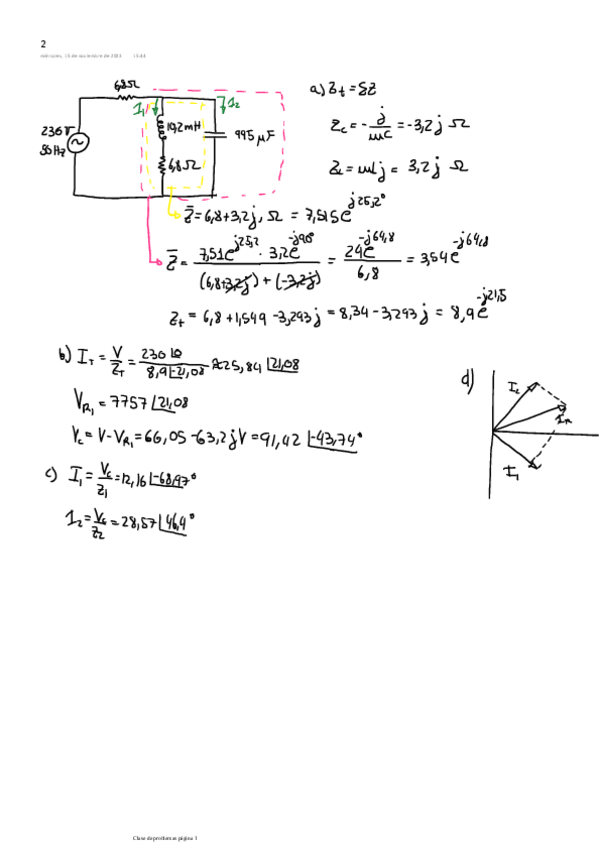 2
miércoles, 15 de noviembre de 2023
6,8Ω
I₁ I₂
230 V
50 Hz
10,2 mH
995 μF
6,8 Ω
a) Z_t = ΣZ
Z_C = - j/ωC = -3,2 j Ω
Z_L = ωL j = 3,2 j Ω
Z̄ = 6,8+3,2 j, Ω = 7,515 e^(j25,2°)
Z̄ = (7,51 e^(j25,2) · 3,2 e^(-j90°)) / ((6,8+3,2j) + (-3,2j)) = 24 e^(-j64,8) / 6,8 = 3,54 e^(-j64,8)
Z_t = 6,8 + 1,549 - 3,293 j = 8,34 - 3,293 j = 8,9 e^(-j21,5)
b) I_T = V/Z_T = 230∠0 / 8,9∠-21,08 ≈ 25,84 ∠21,08
V_R₁ = 7757 ∠21,08
V_C = V - V_R₁ = 66,05 - 63,2 j V = 91,42 ∠-43,74°
c) I₁ = V_C/Z₁ = 12,16 ∠-68,97°
I₂ = V_C/Z₂ = 28,57 ∠46,9°
d)
I₂
I₁
Clase de problemas página 1